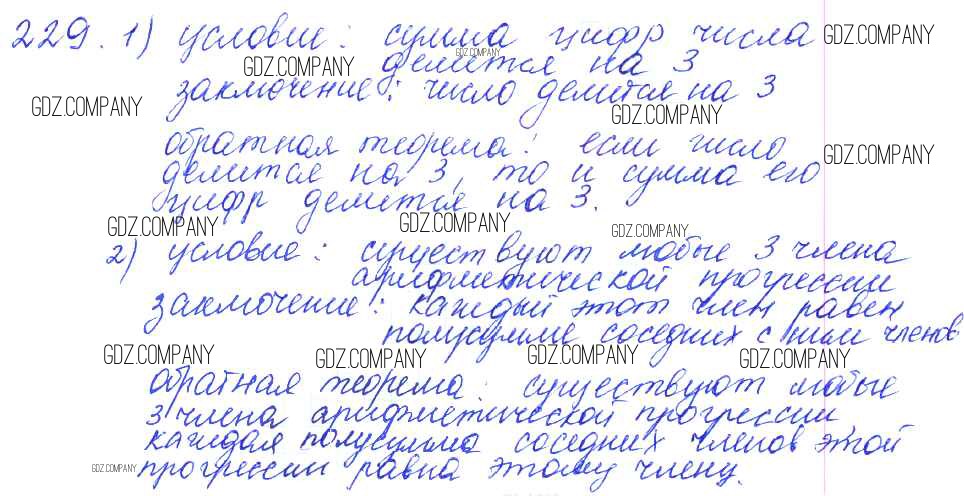 229. 1) условие: сумма цифр числа GDZ.COMPANY
GDZ.COMPANY
GDZ.COMPANY делится на 3
заключение: число делится на 3
GDZ.COMPANY
GDZ.COMPANY
обратная теорема: если число
GDZ.COMPANY
делится на 3, то и сумма его
цифр делится на 3.
GDZ.COMPANY GDZ.COMPANY GDZ.COMPANY
2) условие: существуют любые 3 члена
арифметической прогрессии
заключение: каждый этот член равен
полусумме соседних с ним членов
GDZ.COMPANY GDZ.COMPANY GDZ.COMPANY GDZ.COMPANY
Обратная теорема: существуют любые
3 члена арифметической прогрессии
каждая полусумма соседних членов этой
GDZ.COMPANY прогрессии равна этому члену.